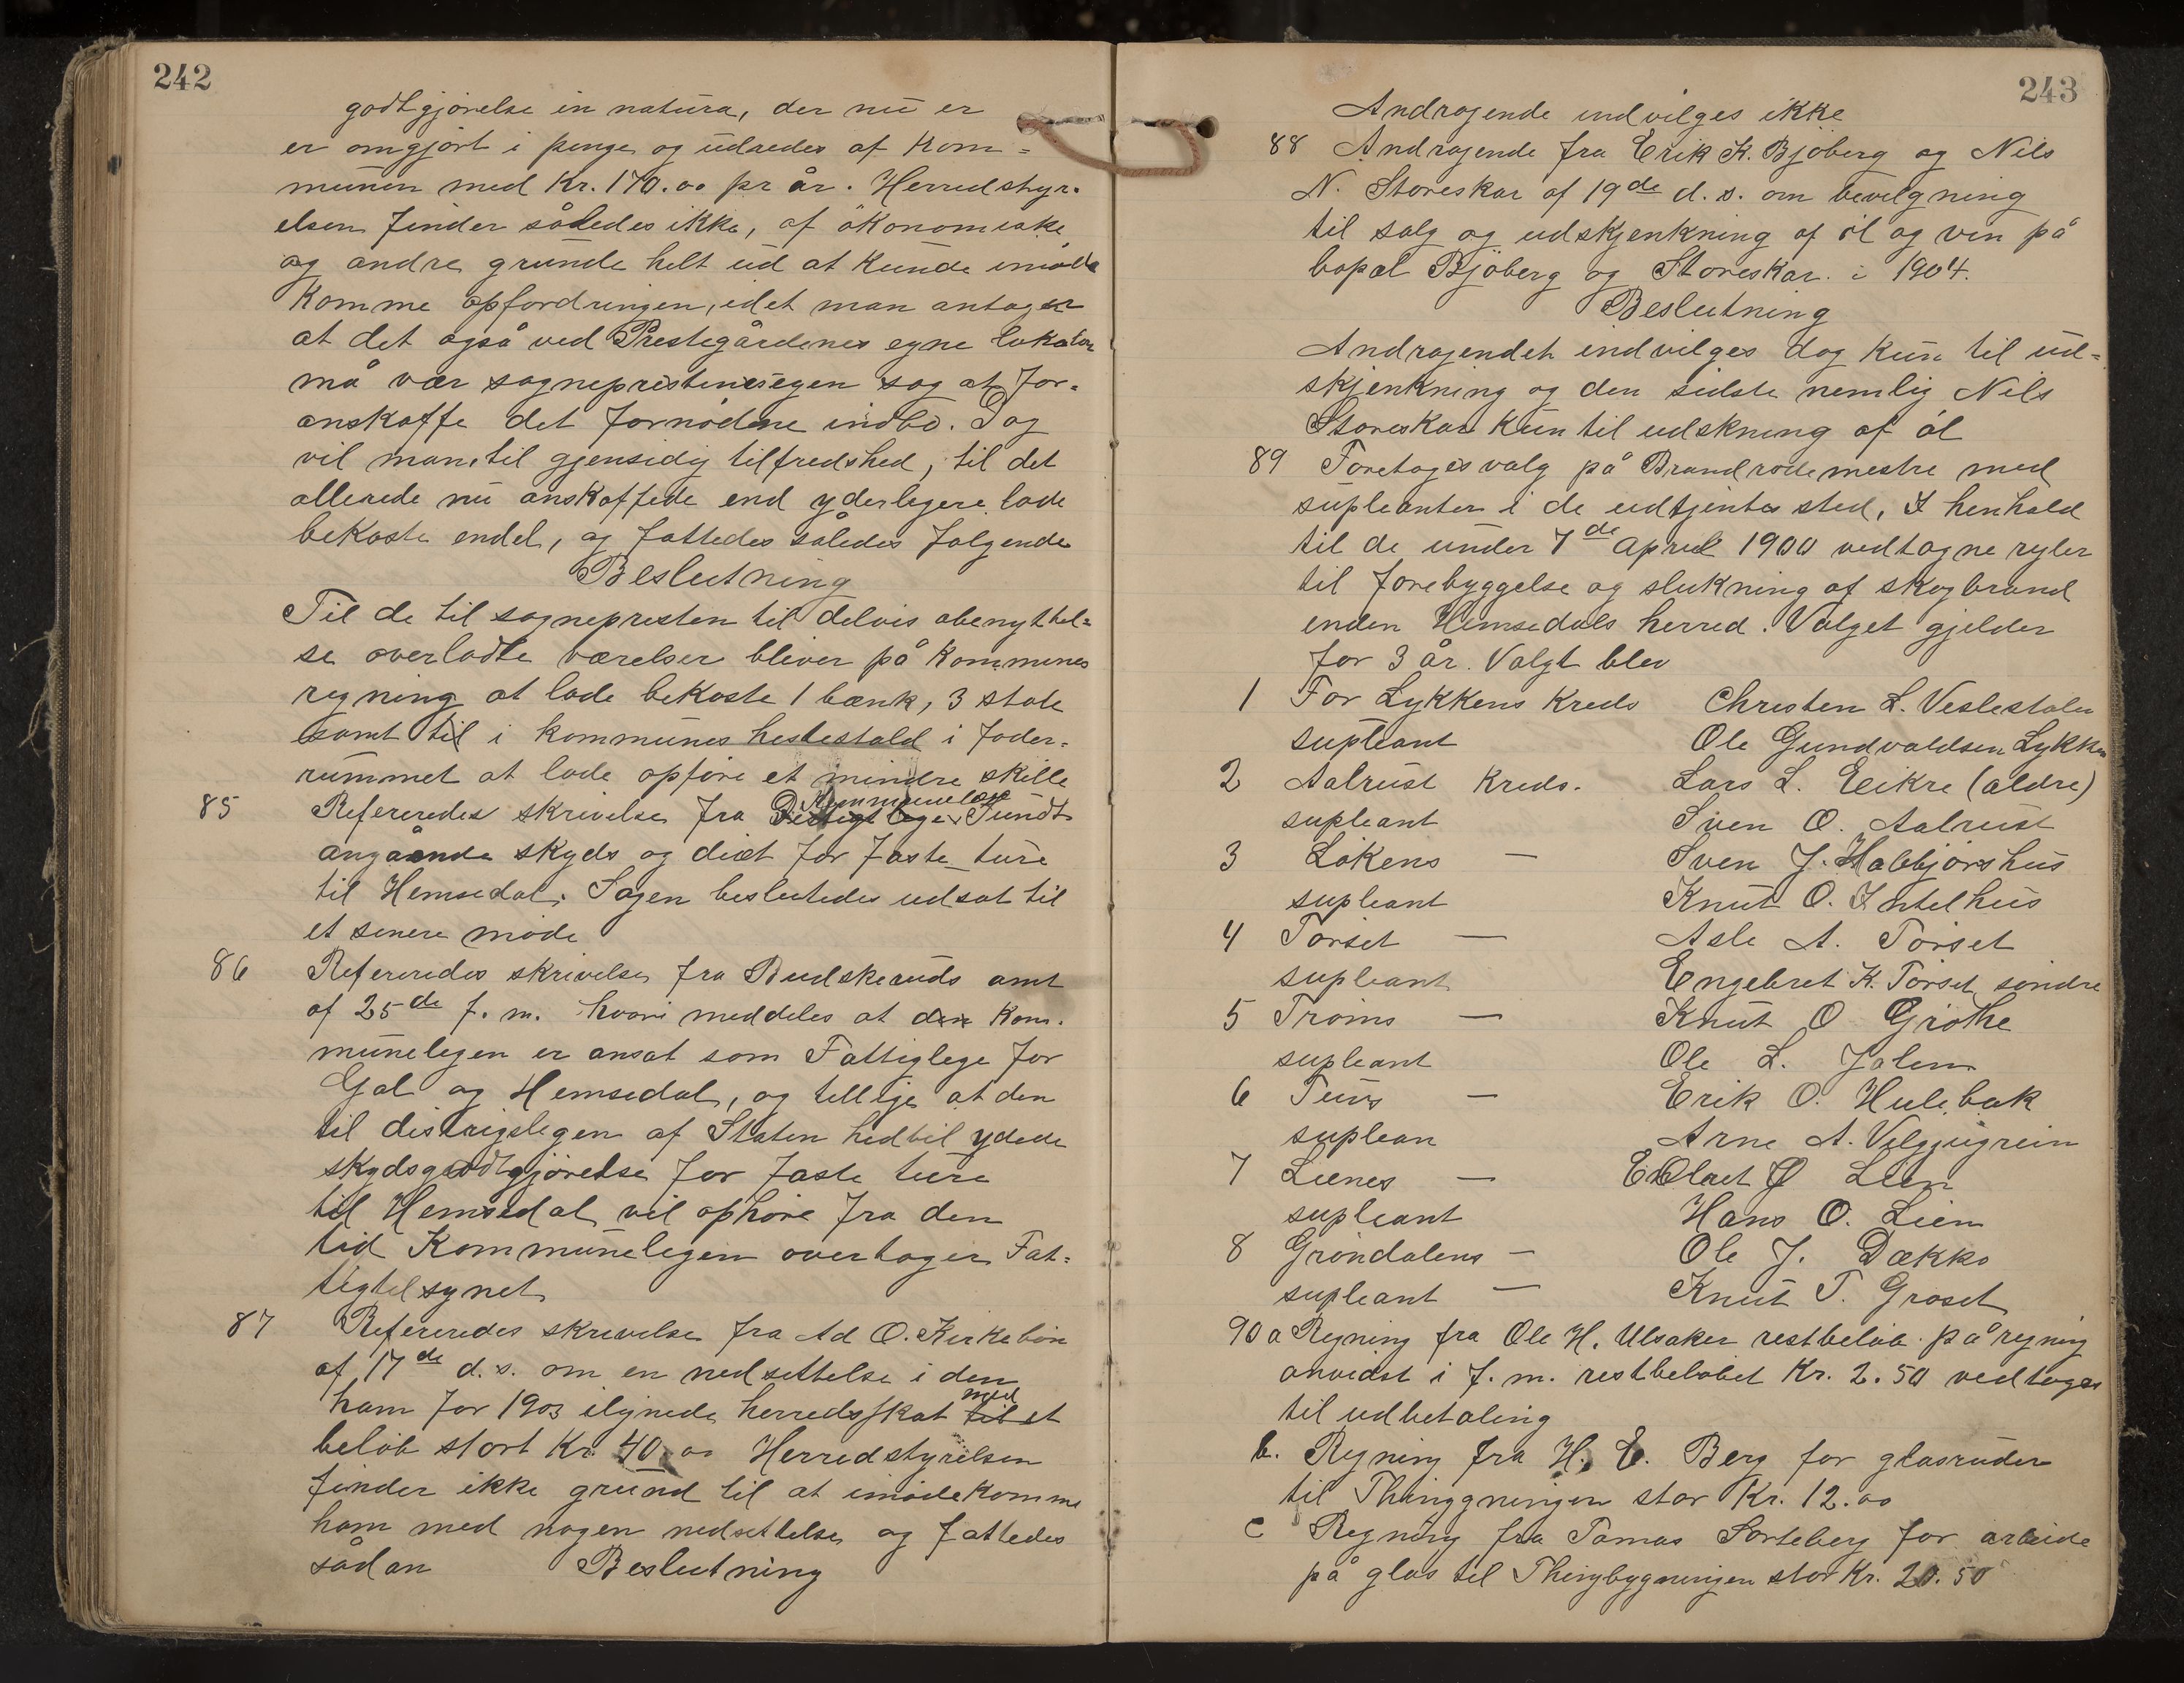 242
godtgjørelse in natura, der nu er
er omgjort i penge og udredes af Kom=
munen med Kr. 170.00 pr år. Herredstyr.
elsen finder således ikke, af økonomiske
og andre grunde helt ud at kunde imøde
komme opfordringen, idet man antager
at det også ved Prestegårdenes egne
må vær sogneprestens egen sag at for.
anskaffe det fornødne indbo. Dog
vil man, til gjensidig tilfredshed, til det
allerede nu anskaffede end yderligere lade
bekoste endel, og fattedes således følgende
Beslutning
Til de til sognepresten til delvis abenyttel=
se overladte værelser bliver på Kommunes
regning at lade bekoste 1 bænk, 3 stole
samt til i kommunes hestestald i foder=
rummet at lade opføre et mindre skille
85 Refereredes skrivelse fra Kommunelæge Tundt
angående skyds og diæt for faste ture
til Hemsedal. Sagen besluttedes udsat til
et senere møde
86 Refereredes skrivelse fra Budskeruds amt
af 25de f. m. hvori meddeles at den Kom.
munelegen er ansat som Fattiglege for
Gol og Hemsedal, og tillige at den
til distrigslegen af Staten hidtil ydede
skydsgodtgjørelse for faste ture
til Hemsedal vil ophøre fra den
tid Kommunelegen overtager Fat=
tigtilsynet
87 Refereredes skrivelse fra Ad O. Kirkebøn
af 17de d. s. om en nedsettelse i den
ham for 1903 ilignede herredsskat med til et
beløb stort Kr. 40.00 Herredstyrelsen
finder ikke grund til at imødekomme
ham med nogen nedsettelse og fattedes
sådan Beslutning
243
Andragende indvilges ikke
88 Andragende fra Erik K. Bjøberg og Nils
N. Storeskar af 19de d. s. om bevilgning
til salg og udskjenkning af øl og vin på
bopæl Bjøberg og Storeskar i 1904.
Beslutning
Andragendet indvilges dog kun til ud=
skjenkning og den sidste nemlig Nils
Storeskar kun til udskning af øl
89 Foretoges valg på Brandrodemestre med
supleanter i de udtjentes sted, I henhold
til de under 7de April 1900 vedtagne regler
til forebyggelse og slukning af skogbrand
enden Hemsedals herred. Valget gjelder
for 3 år. Valgt blev
1 For Lykkens Kreds Christen L. Veslestølen
supleant Ole Gundvaldsen Lykken
2 Aalrust Kreds. Lars L. Eikre (ældre)
supleant Sven O. Aalrust
3 Løkens — Sven J. Halbjørshus
supleant Knut O. Intelhus
4 Torset — Asle A. Torset
supleant Engebret K. Torset søndre
5 Trøims — Knut O Grøthe
supleant Ole L. Jalen
6 Tuvs — Erik O. Hulebak
suplean Arne A. Vøljugrein
7 Lienes — Lien
supleant Hans O. Lien
8 Grøndalens — Ole J. Dækko
supleant — Knut T. Grøset
90 a Regning fra Ole H. Ulsaker restbeløb på regning
anvidst i f. m. restbeløbet Kr. 2.50 vedtoges
til udbetaling
b. Regning fra H. E. Berg for glasruder
til Thinggningen stor Kr. 12.00
c Regning fra Tomas Sorteberg for arbeide
på glas til Thingbygningen stor Kr. 20.50